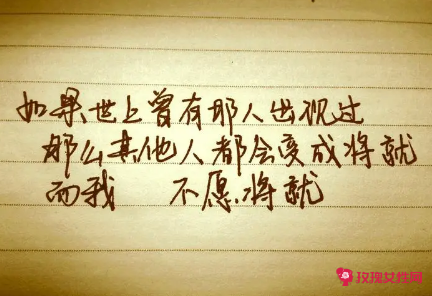 如果世上曾有那人出现过
那么其他人都会变成将就
而我 不愿将就
玫瑰女性网